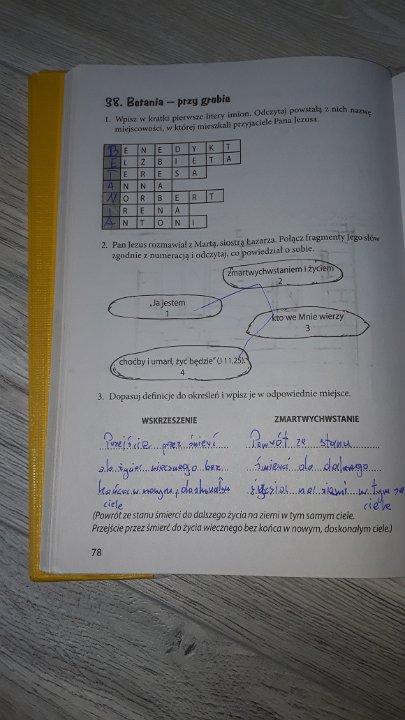 38. Betania – przy grobie
1. Wpisz w kratki pierwsze litery imion. Odczytaj powstałą z nich nazwę
miejscowości, w której mieszkali przyjaciele Pana Jezusa.
BENEDYKT
ELŻBIETA
TERESA
ANNA
NORBERT
IRENA
ANTONI
2. Pan Jezus rozmawiał z Martą, siostrą Łazarza. Połącz fragmenty Jego słów
zgodnie z numeracją i odczytaj, co powiedział o sobie.
zmartwychwstaniem i życiem
2
„Ja jestem
1
kto we Mnie wierzy
3
choćby i umarł, żyć będzie” (J 11,25).
4
3. Dopasuj definicje do określeń i wpisz je w odpowiednie miejsce.
WSKRZESZENIE
Przejście przez śmierć
do życia wiecznego bez
końca w nowym, doskonałym
ciele
ZMARTWYCHWSTANIE
Powrót ze stanu
śmierci do dalszego
życia na ziemi w tym sa
ciele
(Powrót ze stanu śmierci do dalszego życia na ziemi w tym samym ciele.
Przejście przez śmierć do życia wiecznego bez końca w nowym, doskonałym ciele.)
78